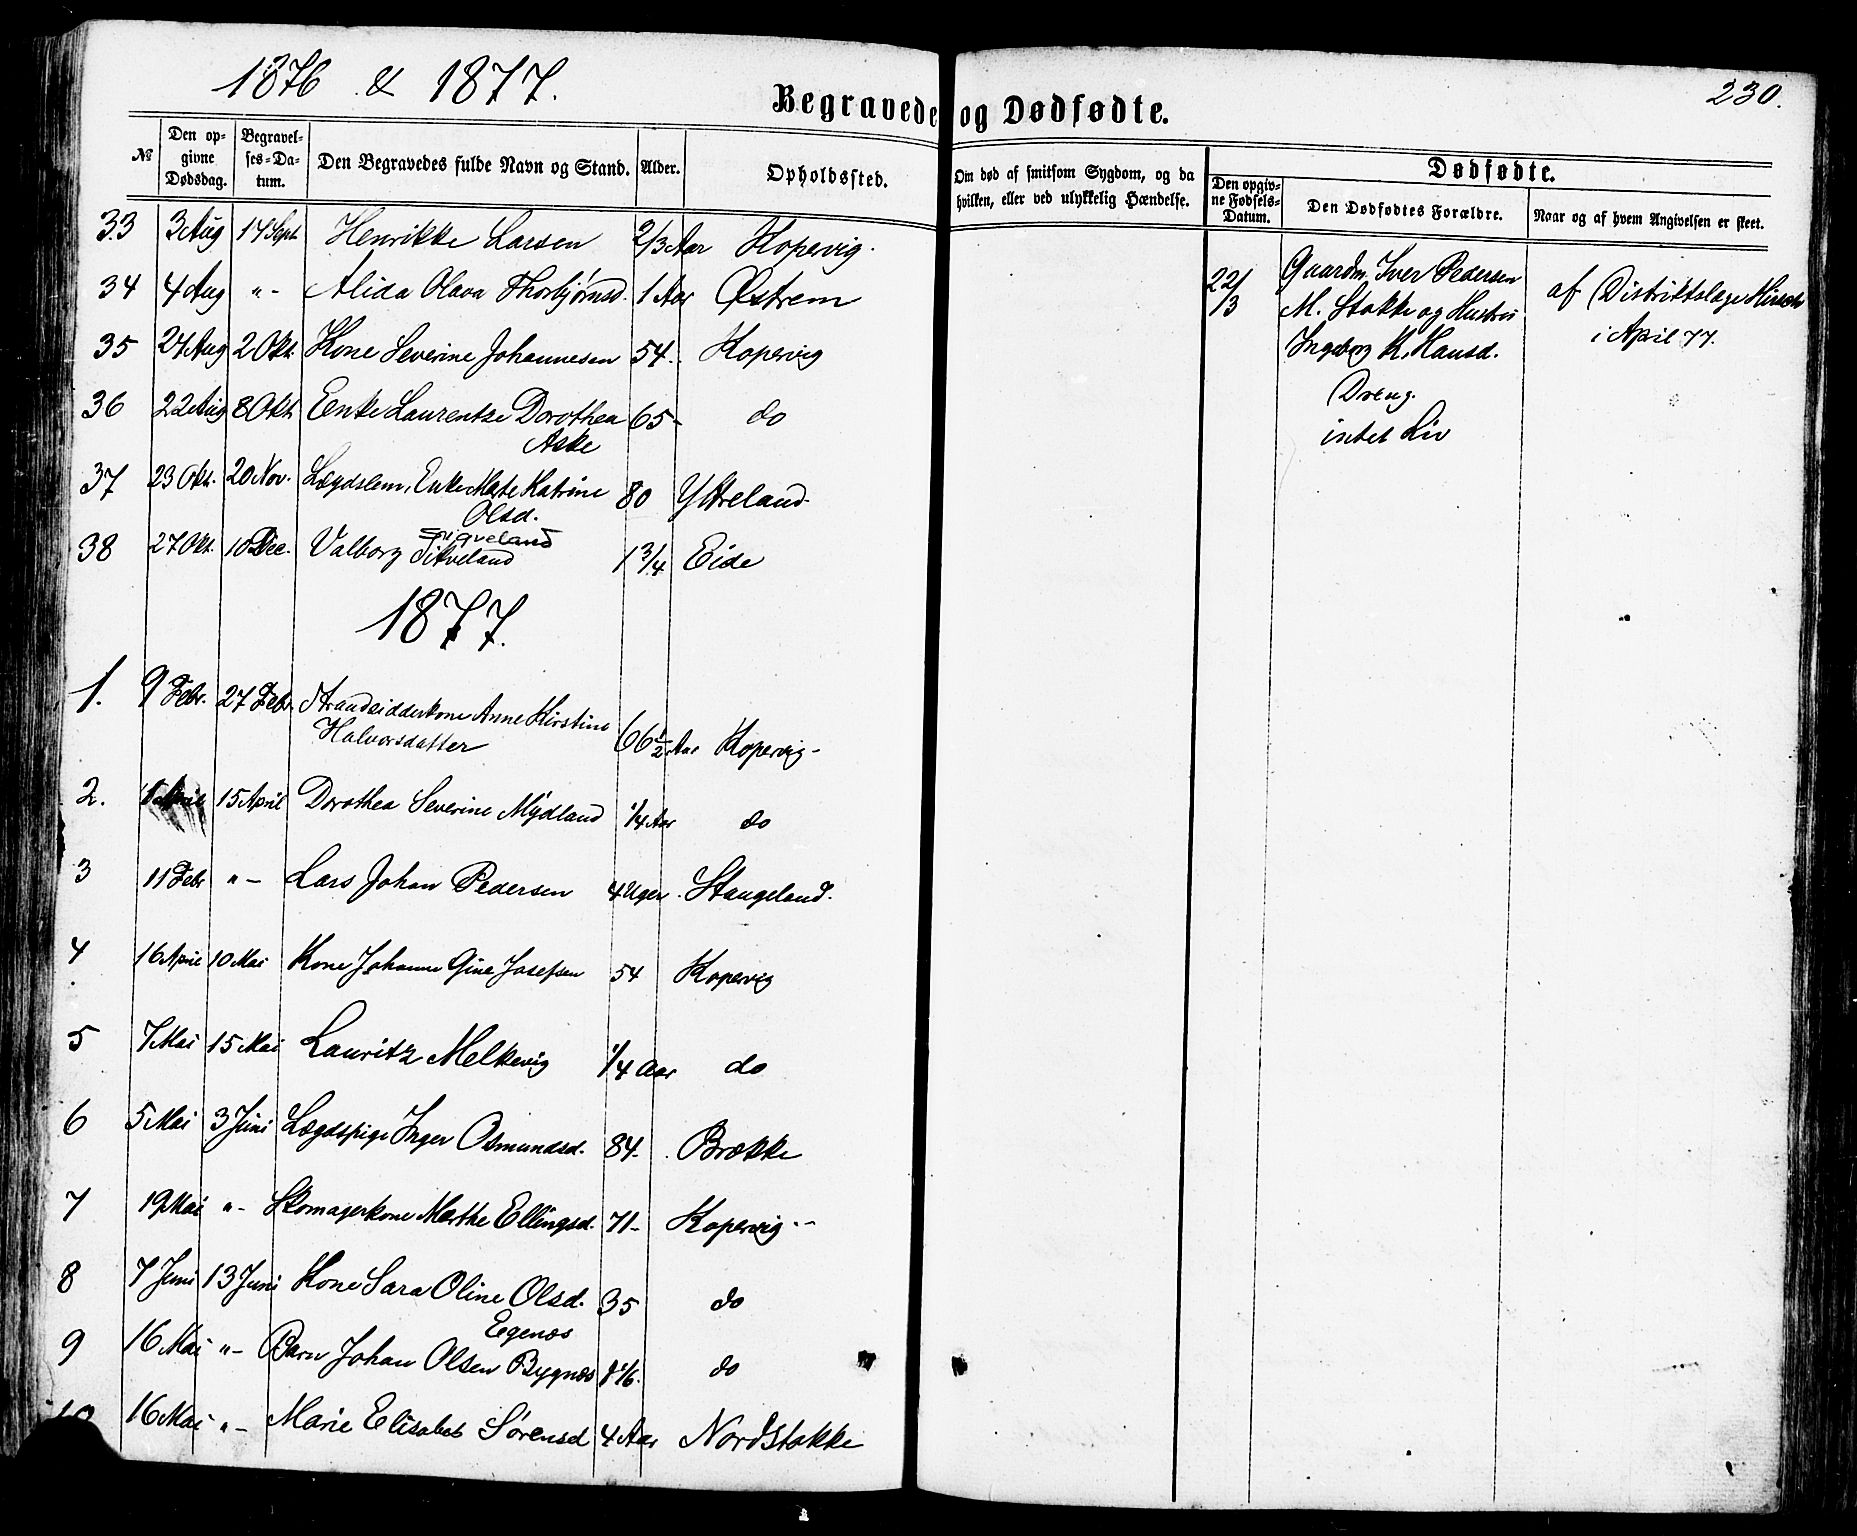 1876 & 1877.
Begravede og Dødfødte.
230.
No
Den op-
givne
Dødsdag.
Begravel-
ses-Da-
tum.
Den Begravedes fulde Navn og Stand.
Alder.
Opholdssted.
Om død af smitsom Sygdom, og da
hvilken, eller ved ulykkelig Hændelse.
Dødfødte.
Den opgiv-
ne Fødsels-
Datum.
Den Dødfødtes Forældre.
Naar og af hvem Angivelsen er skeet.
33 3 Aug 14 Sept Henrikke Larsen 2/3 Aar Kopervig.
34 4 Aug "- Alida Olava Thorbjørnsd. 1 Aar Østrem
35 24 Aug 2 Okt. Kone Severine Johannesen 54. Kopervig
36 22 Aug 8 Okt Enke Laurentze Dorothea 65- do
Aske
37 23 Okt. 20 Nov. Lægdslem, Enke Marte Katrine 80 Ytreland
Olsd.
Sigveland
38 27 Okt. 10 Dec. Valborg Sitveland 1 3/4 Eide
1877.
1. 9 Febr. 27 Febr Strandsidderkone Anne Kirstine
Halvorsdatter 66 1/2 Aar Kopervig-
2. 15 April Dorothea Severine Mydland 1/4 Aar do
3 11 Febr "- Lars Johan Pedersen 4 Uger. Stangeland.
4 16 April 10 Mai Kone Johanne Gine Josefsen 54 Kopervig
5 7 Mai 15 Mai Lauritz Melkevig 1/4 Aar do
6 5 Mai 3 Juni Lægdspige Inger Osmundsd. 84. Brække
7 19 Mai "- Skomagerkone Marthe Ellingsd. 71- Kopervig --
8 7 Juni 13 Juni Kone Sara Oline Olsd. 35 do
Egenæs
9 16 Mai "- Barn Johan Olsen Bygnæs do
10 16 Mai "- Marie Elisabet Sørensd 4 Aar Nordstokke
22/3 Gaardm. Iver Pedersen
M. Stokke og Hustru
Ingeborg K. Hansd.
Dreng.
intet Liv
af Distriktslæge
i April 77.